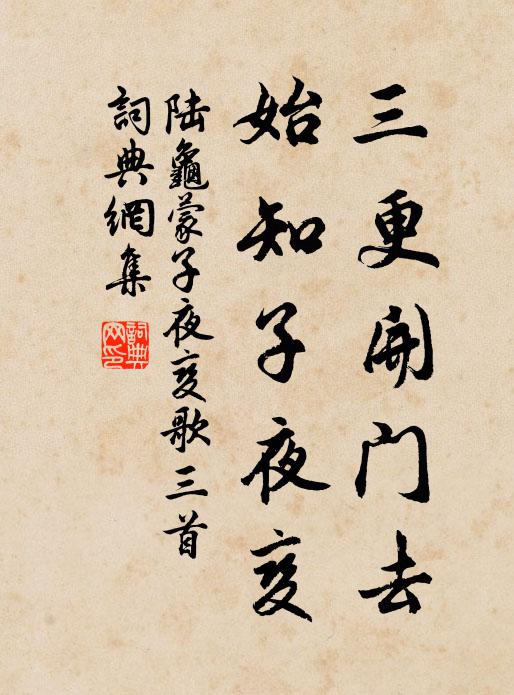 三更開門去
始知子夜变
陆龜蒙子夜变歌三首
詞典網集
詞典網印